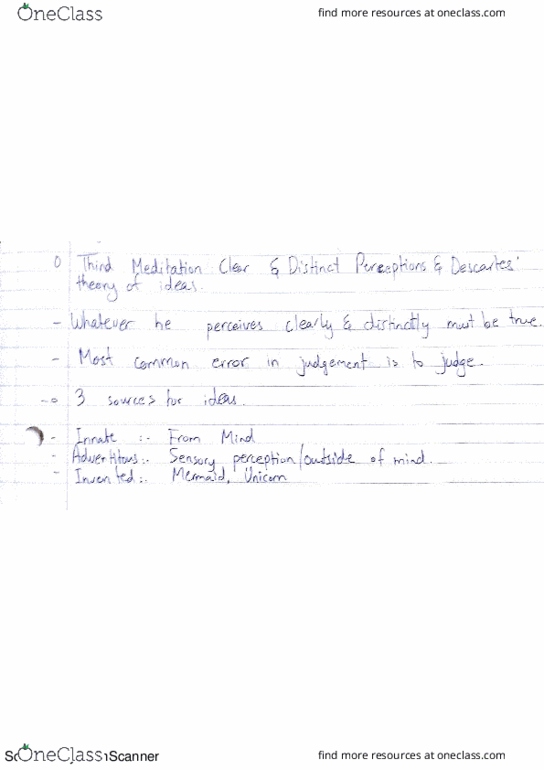 OneClass
find more resources at oneclass.com
Third Meditation Clear & Distinct Perceptions & Descartes'
theory of ideas.
- Whatever he perceives clearly & distinctly must be true.
- Most common error in judgement is to judge.
3 sources for ideas.
- Innate :- From Mind
- Adventitous:- Sensory perception/outside of mind.
- Invented:- Mermaid, Unicorn
OneClass
Scanner
find more resources at oneclass.com